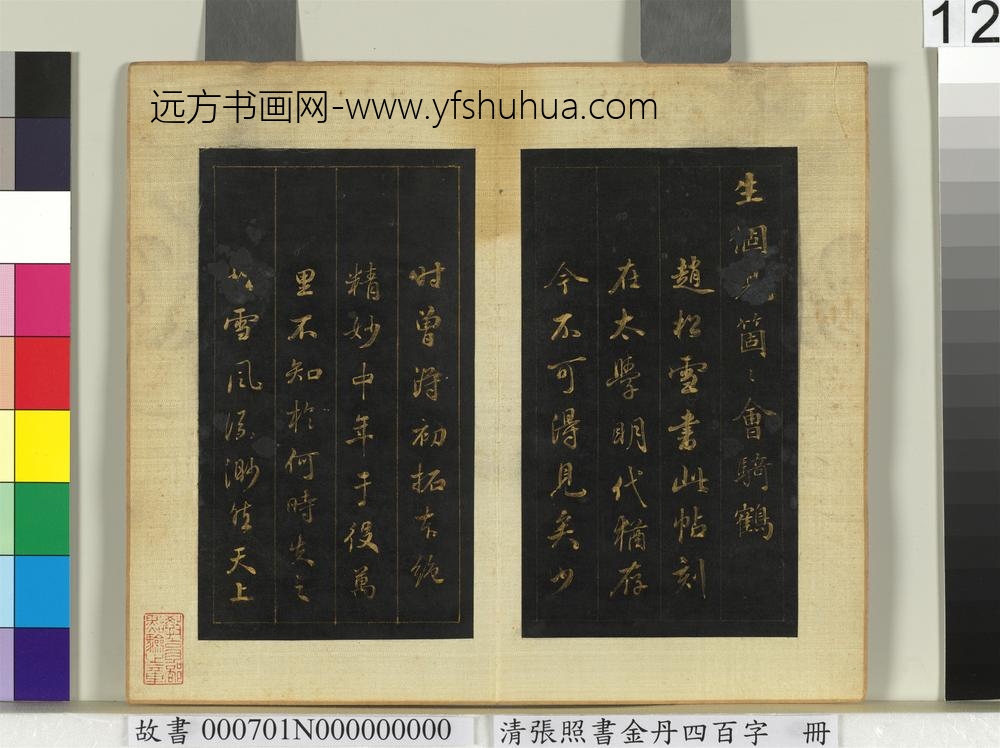 12
远方书画网-www.yfshuhua.com
生個兒箇〻會騎鶴
趙松雪書此帖刻
在太學明代猶存
今不可得見矣少
时曾得初拓本絶
精妙中年于役萬
里不知於何時失之
雪風流渺然天上
故書 000701N000000000
清張照書金丹四百字 冊